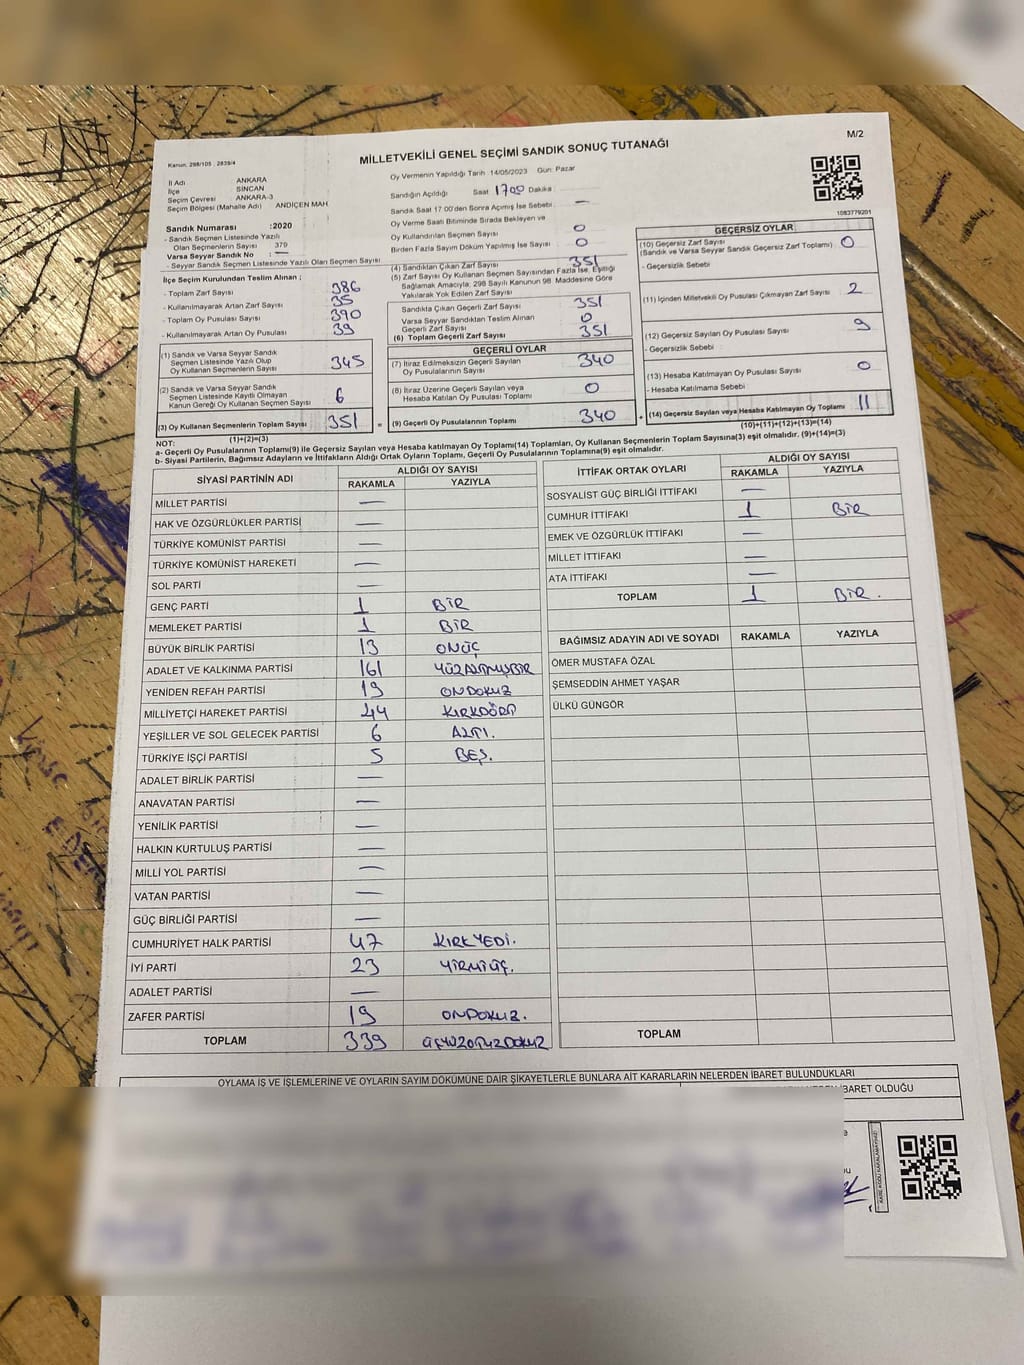 M/2
MİLLETVEKİLİ GENEL SEÇİMİ SANDIK SONUÇ TUTANAĞI
Kanun: 298/105 , 2839/4
Oy Vermenin Yapıldığı Tarih :14/05/2023 Gün: Pazar
İl Adı ANKARA
İlçe SİNCAN
Seçim Çevresi ANKARA-3
Seçim Bölgesi (Mahalle Adı) ANDİÇEN MAH
Sandığın Açıldığı Saat 1700 Dakika :
Sandık Saat 17.00'den Sonra Açılmış İse Sebebi : —
Oy Verme Saati Bitiminde Sırada Bekleyen ve
Oy Kullandırılan Seçmen Sayısı 0
Birden Fazla Sayım Döküm Yapılmış İse Sayısı 0
Sandık Numarası :2020
- Sandık Seçmen Listesinde Yazılı
Olan Seçmenlerin Sayısı 379
Varsa Seyyar Sandık No : —
- Seyyar Sandık Seçmen Listesinde Yazılı Olan Seçmen Sayısı
İlçe Seçim Kurulundan Teslim Alınan ;
- Toplam Zarf Sayısı : 386
- Kullanılmayarak Artan Zarf Sayısı : 35
- Toplam Oy Pusulası Sayısı : 390
- Kullanılmayarak Artan Oy Pusulası : 39
(1) Sandık ve Varsa Seyyar Sandık
Seçmen Listesinde Yazılı Olup
Oy Kullanan Seçmenlerin Sayısı 345
(2) Sandık ve Varsa Seyyar Sandık
Seçmen Listesinde Kayıtlı Olmayan
Kanun Gereği Oy Kullanan Seçmen Sayısı 6
(3) Oy Kullanan Seçmenlerin Toplam Sayısı 351
(1)+(2)=(3)
(4) Sandıktan Çıkan Zarf Sayısı 351
(5) Zarf Sayısı Oy Kullanan Seçmen Sayısından Fazla İse, Eşitliği
Sağlamak Amacıyla; 298 Sayılı Kanunun 98. Maddesine Göre
Yakılarak Yok Edilen Zarf Sayısı
Sandıkta Çıkan Geçerli Zarf Sayısı 351
Varsa Seyyar Sandıktan Teslim Alınan
Geçerli Zarf Sayısı 0
(6) Toplam Geçerli Zarf Sayısı 351
GEÇERLİ OYLAR
(7) İtiraz Edilmeksizin Geçerli Sayılan
Oy Pusulalarının Sayısı 340
(8) İtiraz Üzerine Geçerli Sayılan veya
Hesaba Katılan Oy Pusulası Toplamı 0
= (9) Geçerli Oy Pusulalarının Toplamı 340
1083779201
GEÇERSİZ OYLAR
(10) Geçersiz Zarf Sayısı
(Sandık ve Varsa Seyyar Sandık Geçersiz Zarf Toplamı) 0
- Geçersizlik Sebebi :
(11) İçinden Milletvekili Oy Pusulası Çıkmayan Zarf Sayısı 2
(12) Geçersiz Sayılan Oy Pusulası Sayısı 9
- Geçersizlik Sebebi :
(13) Hesaba Katılmayan Oy Pusulası Sayısı 0
- Hesaba Katılmama Sebebi :
+ (14) Geçersiz Sayılan veya Hesaba Katılmayan Oy Toplamı 11
(10)+(11)+(12)+(13)=(14)
NOT:
a- Geçerli Oy Pusulalarının Toplamı(9) ile Geçersiz Sayılan veya Hesaba katılmayan Oy Toplamı(14) Toplamları, Oy Kullanan Seçmenlerin Toplam Sayısına(3) eşit olmalıdır. (9)+(14)=(3)
b- Siyasi Partilerin, Bağımsız Adayların ve İttifakların Aldığı Oyların Toplamı, Geçerli Oy Pusulalarının Toplamına(9) eşit olmalıdır.
SİYASİ PARTİNİN ADI ALDIĞI OY SAYISI
RAKAMLA YAZIYLA
MİLLET PARTİSİ —
HAK VE ÖZGÜRLÜKLER PARTİSİ —
TÜRKİYE KOMÜNİST PARTİSİ —
TÜRKİYE KOMÜNİST HAREKETİ —
SOL PARTİ —
GENÇ PARTİ 1 BİR
MEMLEKET PARTİSİ 1 BİR
BÜYÜK BİRLİK PARTİSİ 13 ONÜÇ
ADALET VE KALKINMA PARTİSİ 161 YÜZALTMIŞBİR
YENİDEN REFAH PARTİSİ 19 ONDOKUZ
MİLLİYETÇİ HAREKET PARTİSİ 44 KIRKDÖRT
YEŞİLLER VE SOL GELECEK PARTİSİ 6 ALTI.
TÜRKİYE İŞÇİ PARTİSİ 5 BEŞ.
ADALET BİRLİK PARTİSİ —
ANAVATAN PARTİSİ —
YENİLİK PARTİSİ —
HALKIN KURTULUŞ PARTİSİ —
MİLLİ YOL PARTİSİ —
VATAN PARTİSİ —
GÜÇ BİRLİĞİ PARTİSİ —
CUMHURİYET HALK PARTİSİ 47 KIRKYEDİ.
İYİ PARTİ 23 YİRMİÜÇ.
ADALET PARTİSİ —
ZAFER PARTİSİ 19 ONDOKUZ.
TOPLAM 339 ÜÇYÜZOTUZDOKUZ
İTTİFAK ORTAK OYLARI ALDIĞI OY SAYISI
RAKAMLA YAZIYLA
SOSYALİST GÜÇ BİRLİĞİ İTTİFAKI —
CUMHUR İTTİFAKI 1 BİR
EMEK VE ÖZGÜRLÜK İTTİFAKI —
MİLLET İTTİFAKI —
ATA İTTİFAKI —
TOPLAM 1 BİR.
BAĞIMSIZ ADAYIN ADI VE SOYADI RAKAMLA YAZIYLA
ÖMER MUSTAFA ÖZAL
ŞEMSEDDİN AHMET YAŞAR
ÜLKÜ GÜNGÖR
TOPLAM
OYLAMA İŞ VE İŞLEMLERİNE VE OYLARIN SAYIM DÖKÜMÜNE DAİR ŞİKAYETLERLE BUNLARA AİT KARARLARIN NELERDEN İBARET BULUNDUKLARI
İBARET OLDUĞU